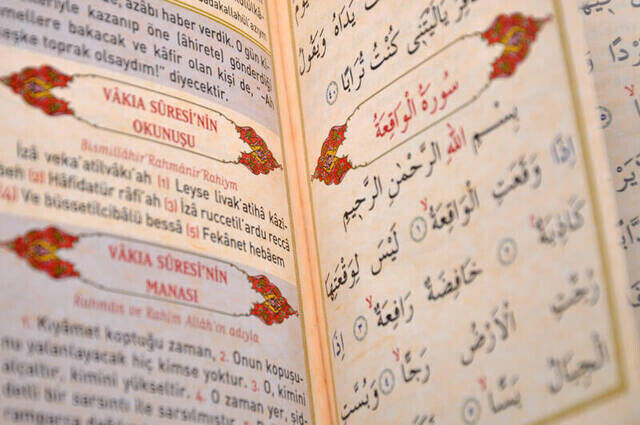 , azâbı haber verdik. O gün kişi
elleriyle kazanıp öne (âhirete) gönderdiği
amellere bakacak ve kâfir olan kişi de, "-Âh
keşke toprak olsaydım!" diyecektir.
VÂKIA SÛRESİ'NİN
OKUNUŞU
Bismillâhir'Rahmânir'Rahıym
İzâ veka'atilvâkı'ah (1) Leyse livak'atihâ kâzi-
beh (2) Hâfidatür râfi'ah (3) İzâ ruccetil'ardu reccâ
(4) Ve büssetilcibâlü bessâ (5) Fekânet hebâem
VÂKIA SÛRESİ'NİN
MANASI
Rahman ve Rahîm Allâh'ın adıyla
1. Kıyâmet koptuğu zaman, 2. Onun kopuşu-
nu yalanlayacak hiç kimse yoktur. 3. O, kimini
alçaltır, kimini yükseltir. 4. O zaman yer, şid-
detli bir sarsıntı ile sarsılmıştır. 5.
يَدَاهُ وَيَقُولُ
الْكَافِرُ يَا لَيْتَنِي كُنْتُ تُرَابًا ٤٠
سُورَةُ الْوَاقِعَةِ
بِسْمِ اللّٰهِ الرَّحْمٰنِ الرَّحِيمِ
اِذَا وَقَعَتِ الْوَاقِعَةُ ١ لَيْسَ لِوَقْعَتِهَا
كَاذِبَةٌ ٢ خَافِضَةٌ رَافِعَةٌ ٣ اِذَا
رُجَّتِ الْاَرْضُ رَجًّا ٤ وَبُسَّتِ
الْجِبَالُ بَسًّا ٥